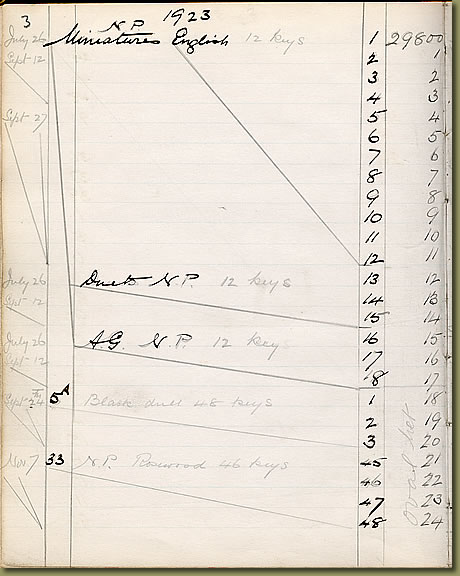 3 N.P. 1923
July 26 Miniatures English 12 keys 1 29800
Sept 12 2 1
3 2
4 3
Sept 27 5 4
6 5
7 6
8 7
9 8
10 9
11 10
12 11
July 26 Duets N.P. 12 keys 13 12
Sept 12 14 13
15 14
July 26 A.G. N.P. 12 keys 16 15
Sept 12 17 16
18 17
Sept 24 5A Black duet 48 keys 1 18
2 19
3 20
Nov 7 33 N.P. Rosewood 46 keys 45 21
46 22
47 23
48 24
oval